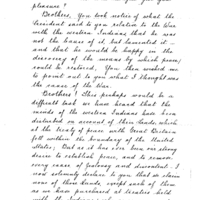 pleasure!
Brothers, You took notice of what the
President said to you relative to the War
with the western Indians that he was
not the cause of it, but lamented it —
and that he would be happy in the
discovery of the means by which peace
could be restored. You then wished
me to point out to you what I thought was
the cause of the War.
Brothers! This perhaps would be a
difficult task we have heard that the minds
of the western Indians have been
disturbed on account of their lands, which
at the treaty of peace with Great Britain
fell within the boundary of the United
States. But as it has ever been our strong
desire to establish peace, and to remove
every cause of jealousy and discontent. I
now solemnly declare to you that we claim
none of those lands, except such of them
as we have purchased at treaties held